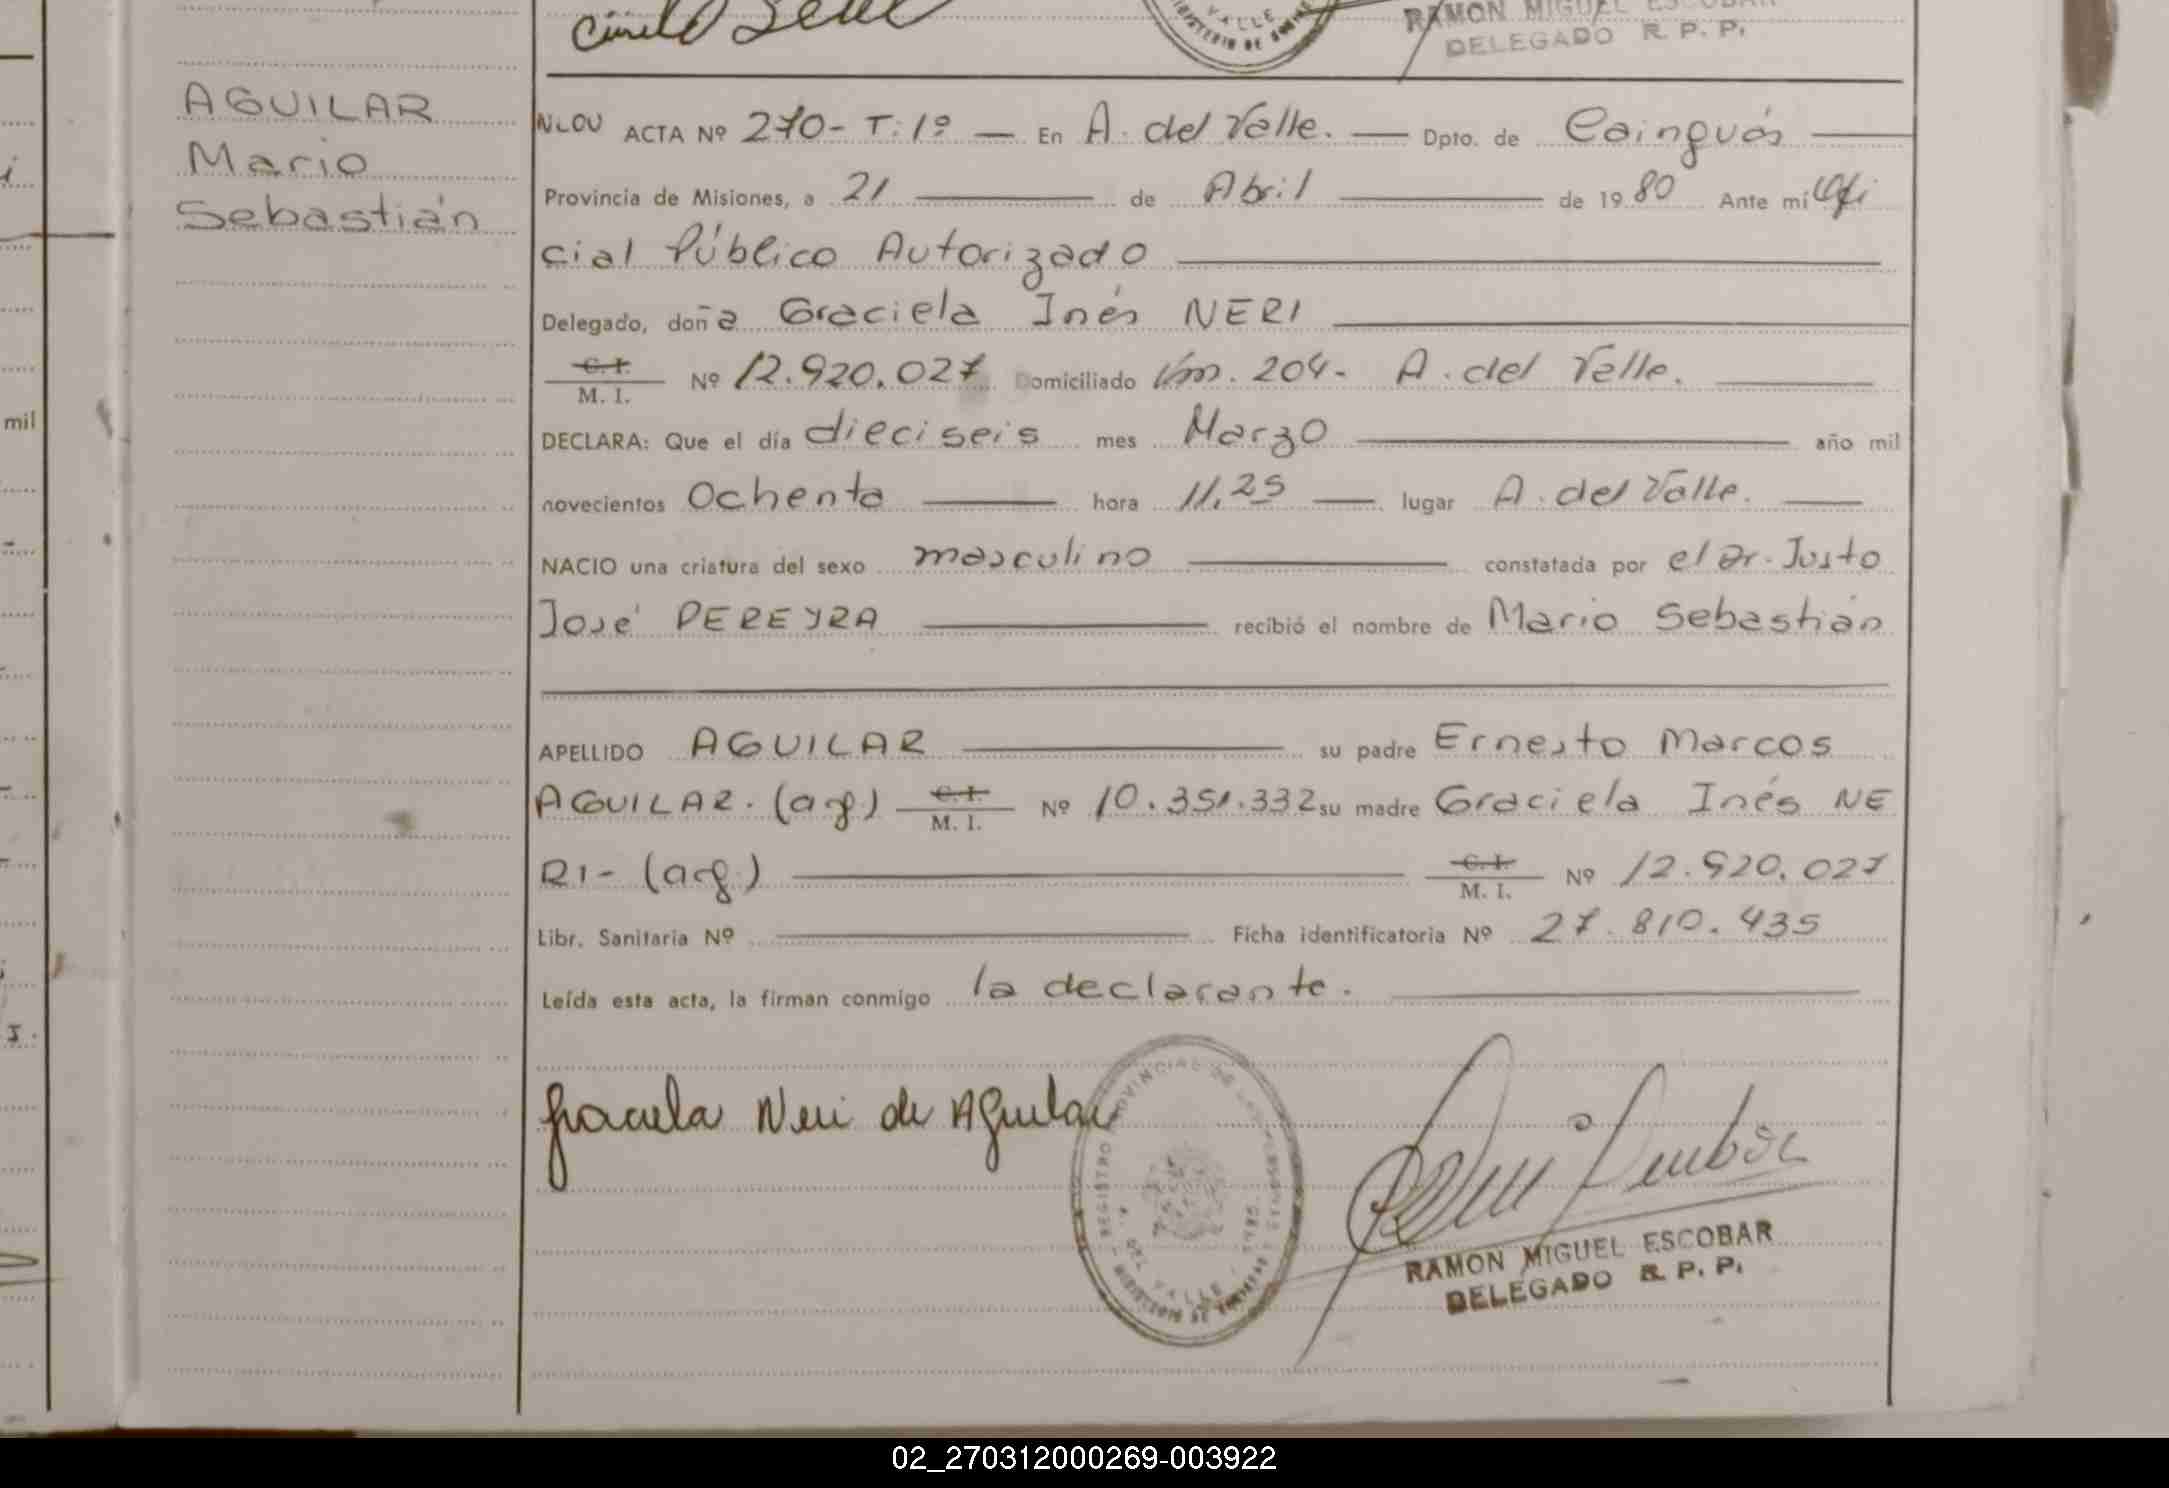 RAMON MIGUEL ESCOBAR
DELEGADO R. P. P.
AGUILAR
Mario
Sebastián
ACTA Nº 270- T: 1º — En A. del Valle. — Dpto. de Cainguás
Provincia de Misiones, a 21 de Abril de 1980 Ante mí Ofi
cial Público Autorizado
Delegado, doña Graciela Inés NERI
C. I. M. I. Nº 12.920.027 Domiciliado Km. 204- A. del Valle.
DECLARA: Que el día dieciseis mes Marzo año mil
novecientos Ochenta hora 11,25 lugar A. del Valle.
NACIO una criatura del sexo masculino constatada por el Dr. Justo
José PEREYRA recibió el nombre de Mario Sebastián
APELLIDO AGUILAR su padre Ernesto Marcos
AGUILAR. (arg.) C. I. M. I. Nº 10.351.332 su madre Graciela Inés NE
RI- (arg.) C. I. M. I. Nº 12.920.027
Libr. Sanitaria Nº Ficha identificatoria Nº 27.810.435
Leída esta acta, la firman conmigo la declarante.
Graciela Neri de Aguilar
REGISTRO PROVINCIAL DE LAS PERSONAS
DEL VALLE
RAMON MIGUEL ESCOBAR
DELEGADO R. P. P.
mil
02_270312000269-003922